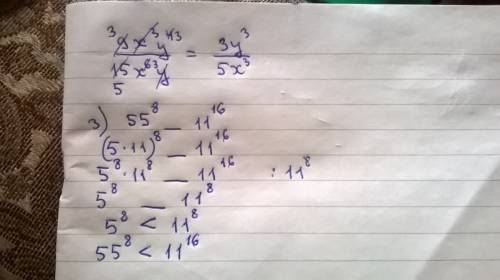 ³9x³y⁴³ / 15x⁶³y 5 = 3y³ / 5x³
3) 55⁸ _ 11¹⁶
(5·11)⁸ _ 11¹⁶
5⁸·11⁸ _ 11¹⁶ :11⁸
5⁸ _ 11⁸
5⁸ < 11⁸
55⁸ < 11¹⁶